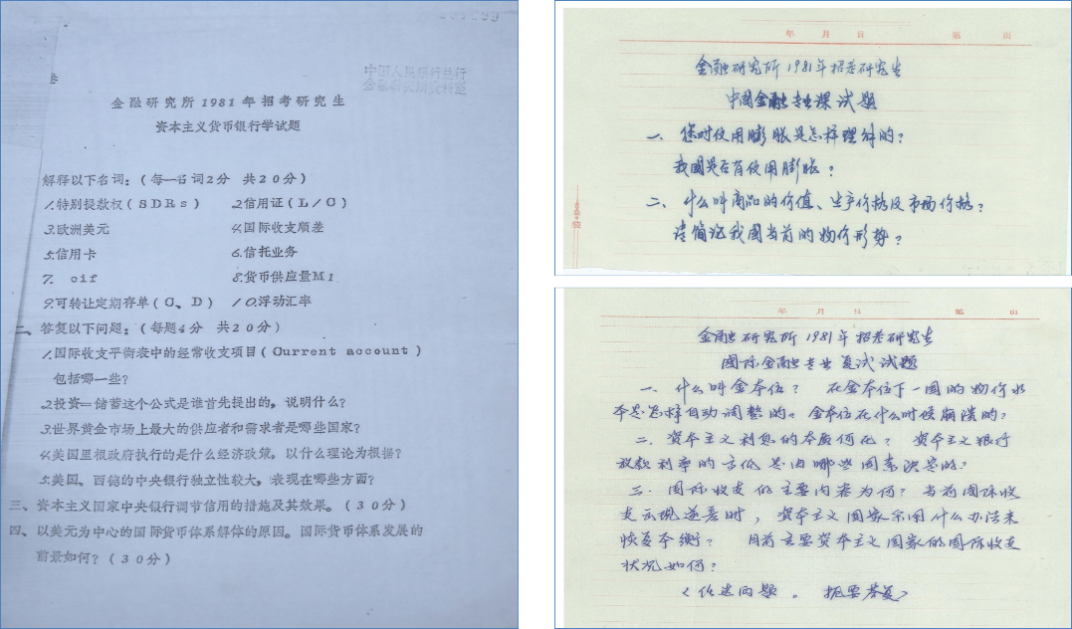 卷
中国人民银行总行
金融研究所资料室
金融研究所1981年招考研究生
资本主义货币银行学试题
解释以下名词：(每一名词2分 共20分)
1.特别提款权(SDRs) 2.信用证(L/C)
3.欧洲美元 4.国际收支顺差
5.信用卡 6.信托业务
7. cif 8.货币供应量M1
9.可转让定期存单(C、D) 10.浮动汇率
二、答复以下问题：(每题4分 共20分)
1.国际收支平衡表中的经常收支项目(Current account)
包括哪一些？
2.投资=储蓄这个公式是谁首先提出的，说明什么？
3.世界黄金市场上最大的供应者和需求者是哪些国家？
4.美国里根政府执行的是什么经济政策，以什么理论为根据？
5.美国、西德的中央银行独立性较大，表现在哪些方面？
三、资本主义国家中央银行调节信用的措施及其效果。(30分)
四、以美元为中心的国际货币体系解体的原因。国际货币体系发展的
前景如何？(30分)
年 月 日 第 页
金融研究所1981年招考研究生
中国金融专业课试题
一、您对使用膨胀是怎样理解的？
我国是否有使用膨胀？
二、什么叫商品的价值、生产价格及市场价格？
请简论我国当前的物价形势？
装
年 月 日 第 页
金融研究所1981年招考研究生
国际金融专业复试试题
一、什么叫金本位？ 在金本位下一国的物价水
平是怎样自动调整的。金本位在什么时候崩溃的？
二、资本主义利息的本质何在？ 资本主义银行
放款利率的高低是由哪些因素决定的？
三、国际收支的主要内容为何？当前国际收
支出现逆差时，资本主义国家采用什么办法来
恢复平衡？ 目前主要资本主义国家的国际收支
状况如何？
(任选两题。 扼要答复)